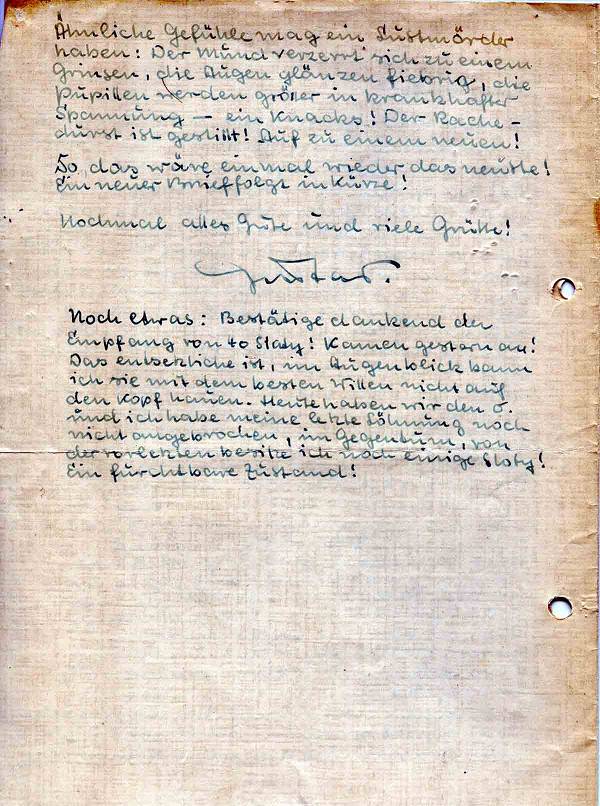 Ähnliche Gefühle mag ein Lustmörder
haben: Der Mund verzerrt sich zu einem
Grinsen, die Augen glänzen fiebrig, die
Pupillen werden größer in krankhafter
Spannung — ein Knacks! Der Rache-
durst ist gestillt! Auf zu einem neuen!
So, das wäre einmal wieder das neuste!
Ein neuer Brief folgt in Kürze!
Nochmal alles Gute und viele Grüße!
Gustav.
Noch etwas: Bestätige dankend den
Empfang von 40 Sloty! Kamen gestern an!
Das entsetzliche ist, im Augenblick kann
ich sie mit dem besten Willen nicht auf
den Kopf hauen. Heute haben wir den 5.
und ich habe meine letzte Löhnung noch
nicht angebrochen, im Gegentum, von
der vorletzten besitze ich noch einige Sloty!
Ein furchtbare Zustand!